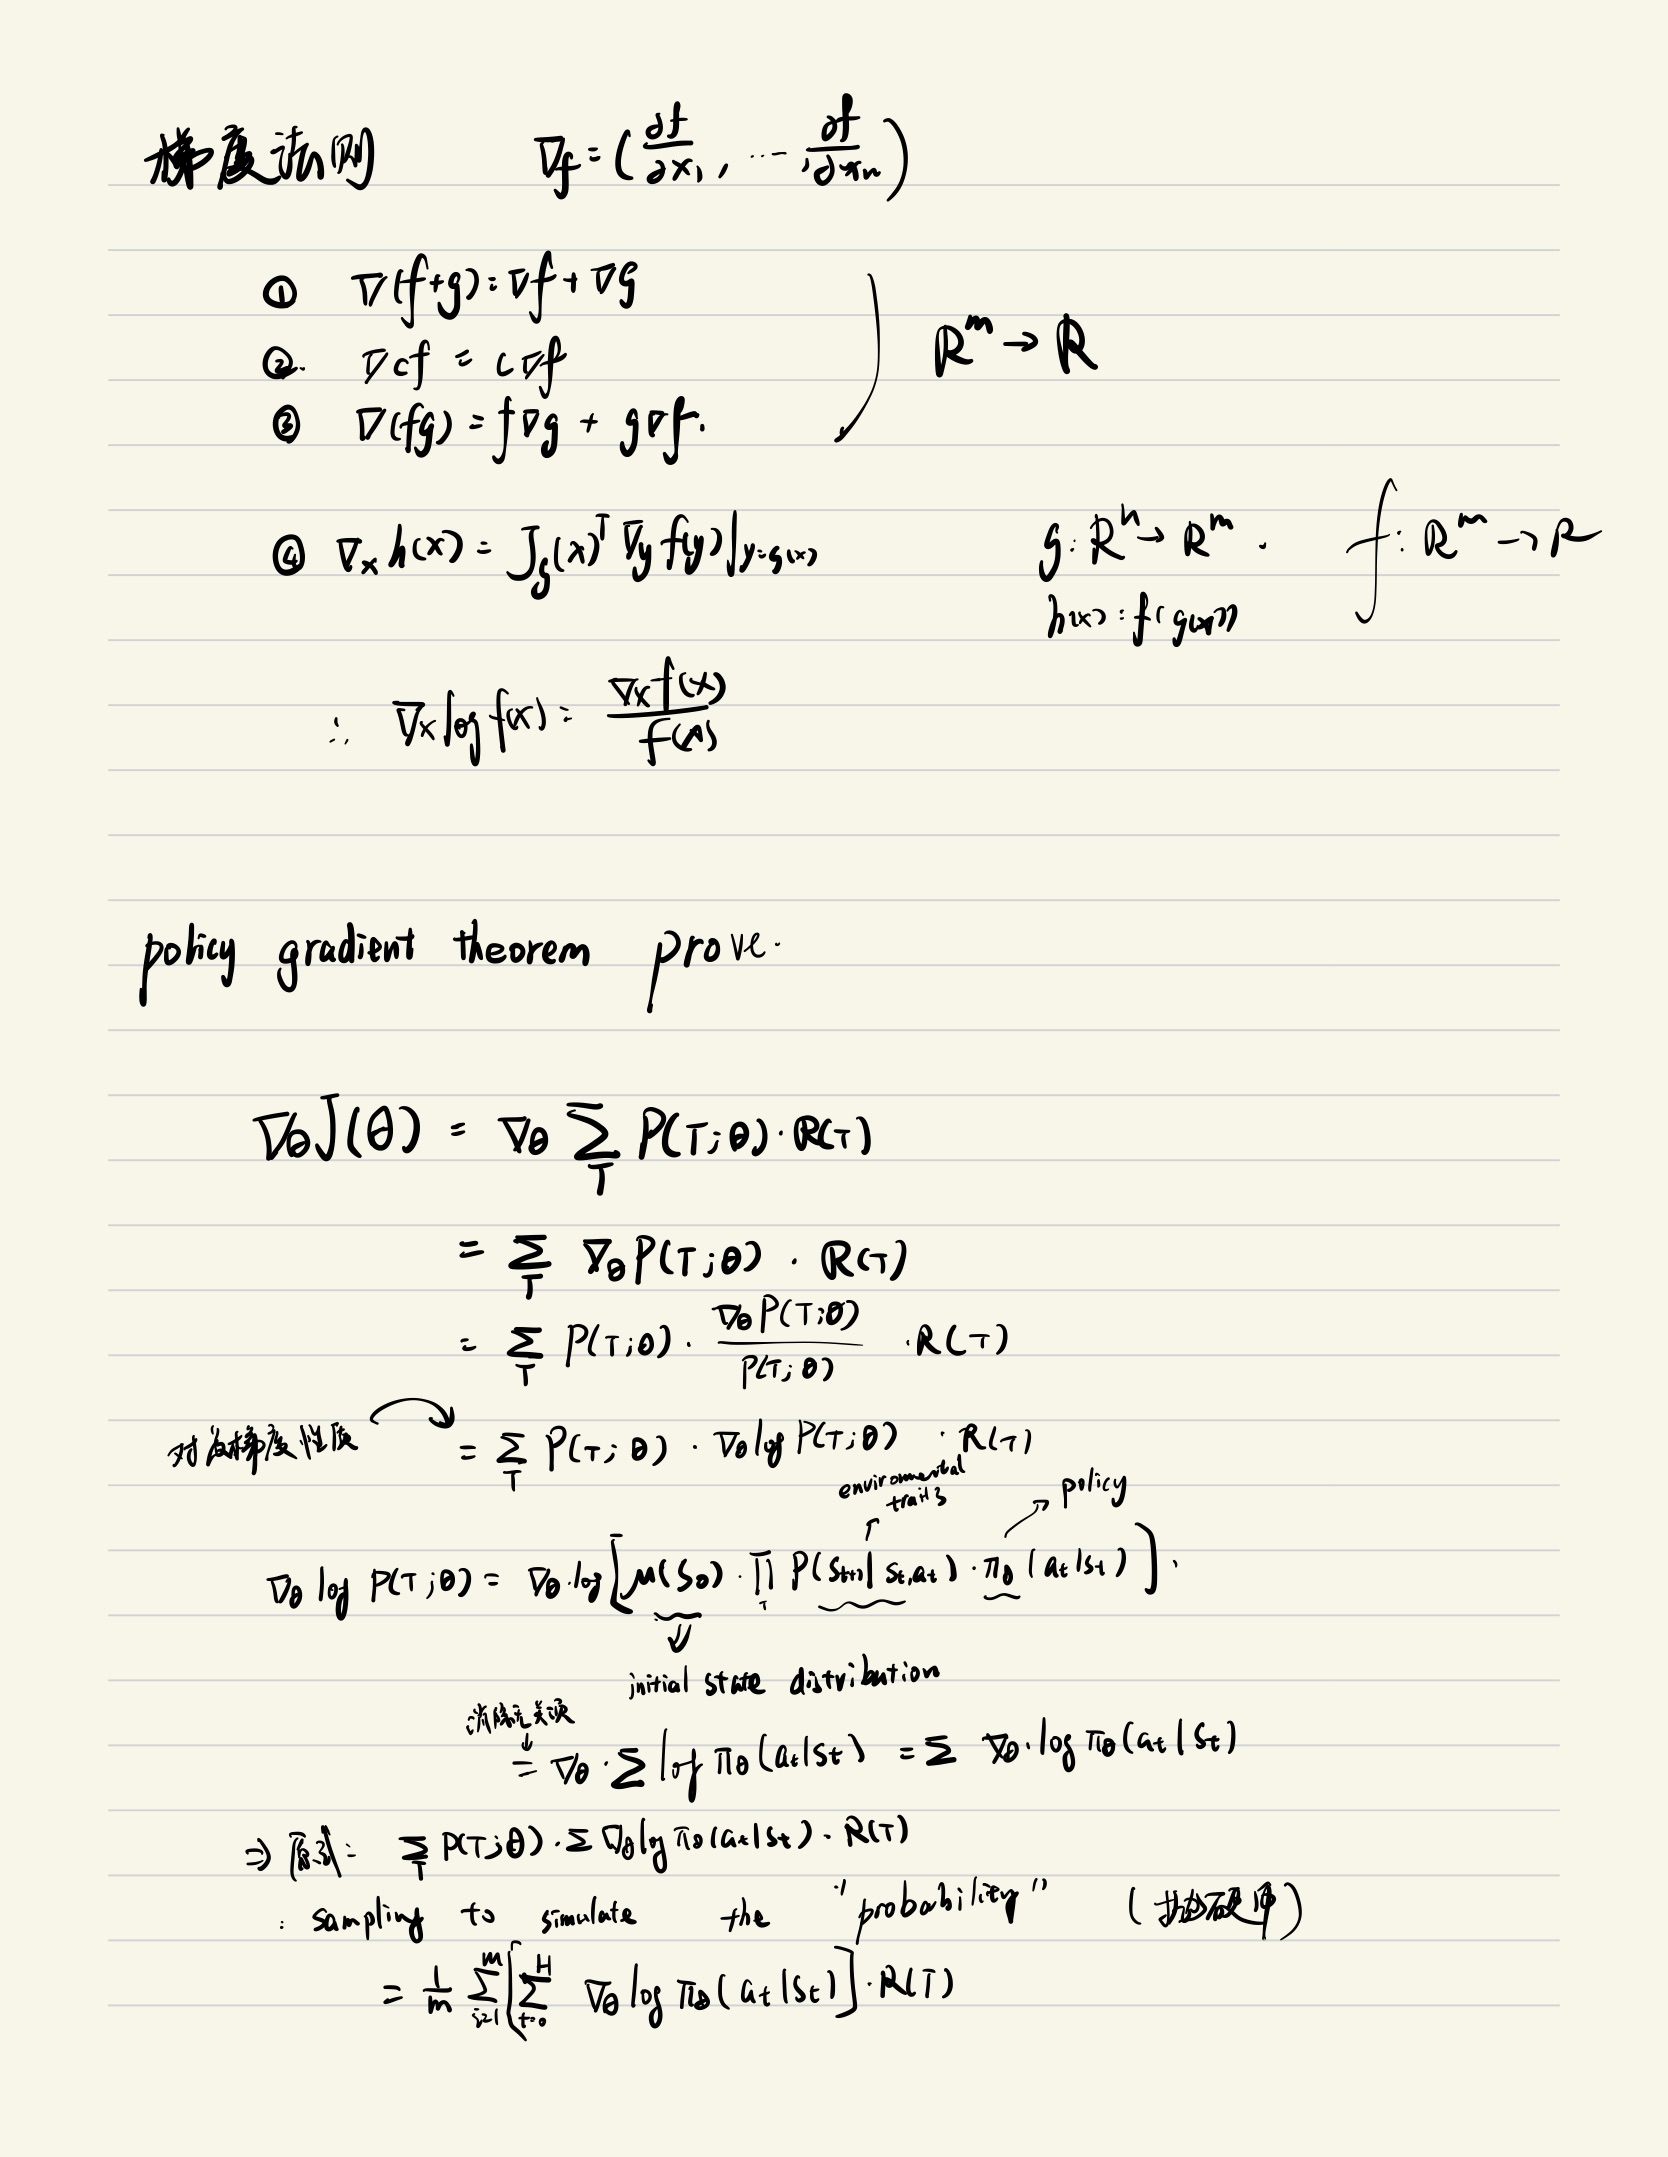 梯度法则 ∇f = (∂f/∂x₁, ... , ∂f/∂xₙ)
① ∇(f+g) = ∇f + ∇g
② ∇cf = c∇f
③ ∇(fg) = f∇g + g∇f.
Rᵐ → R
④ ∇ₓ h(x) = J_g(x)ᵀ ∇_y f(y)|_{y=g(x)} g: Rⁿ → Rᵐ. f: Rᵐ → R
h(x) = f(g(x))
∴ ∇ₓ log f(x) = ∇ₓ f(x) / f(x)
policy gradient theorem prove.
∇_θ J(θ) = ∇_θ Σ_T P(T;θ)·R(T)
= Σ_T ∇_θ P(T;θ) · R(T)
= Σ_T P(T;θ) · ∇_θ P(T;θ) / P(T;θ) · R(T)
对数梯度性质 = Σ_T P(T;θ) · ∇_θ log P(T;θ) · R(T)
policy
∇_θ log P(T;θ) = ∇_θ · log [μ(S₀) · ∏_T P(S_{t+1}|S_t,a_t) · π_θ(a_t|S_t)].
initial state distribution
消除无关项
= ∇_θ · Σ log π_θ(a_t|S_t) = Σ ∇_θ · log π_θ(a_t|S_t)
⇒ 原式 = Σ_T P(T;θ) · Σ ∇_θ log π_θ(a_t|S_t) · R(T)
: sampling to simulate the "probability" (抛硬币)
= 1/m Σ_{i=1}^m [Σ_{t=0}^H ∇_θ log π_θ(a_t|S_t)] · R(T)